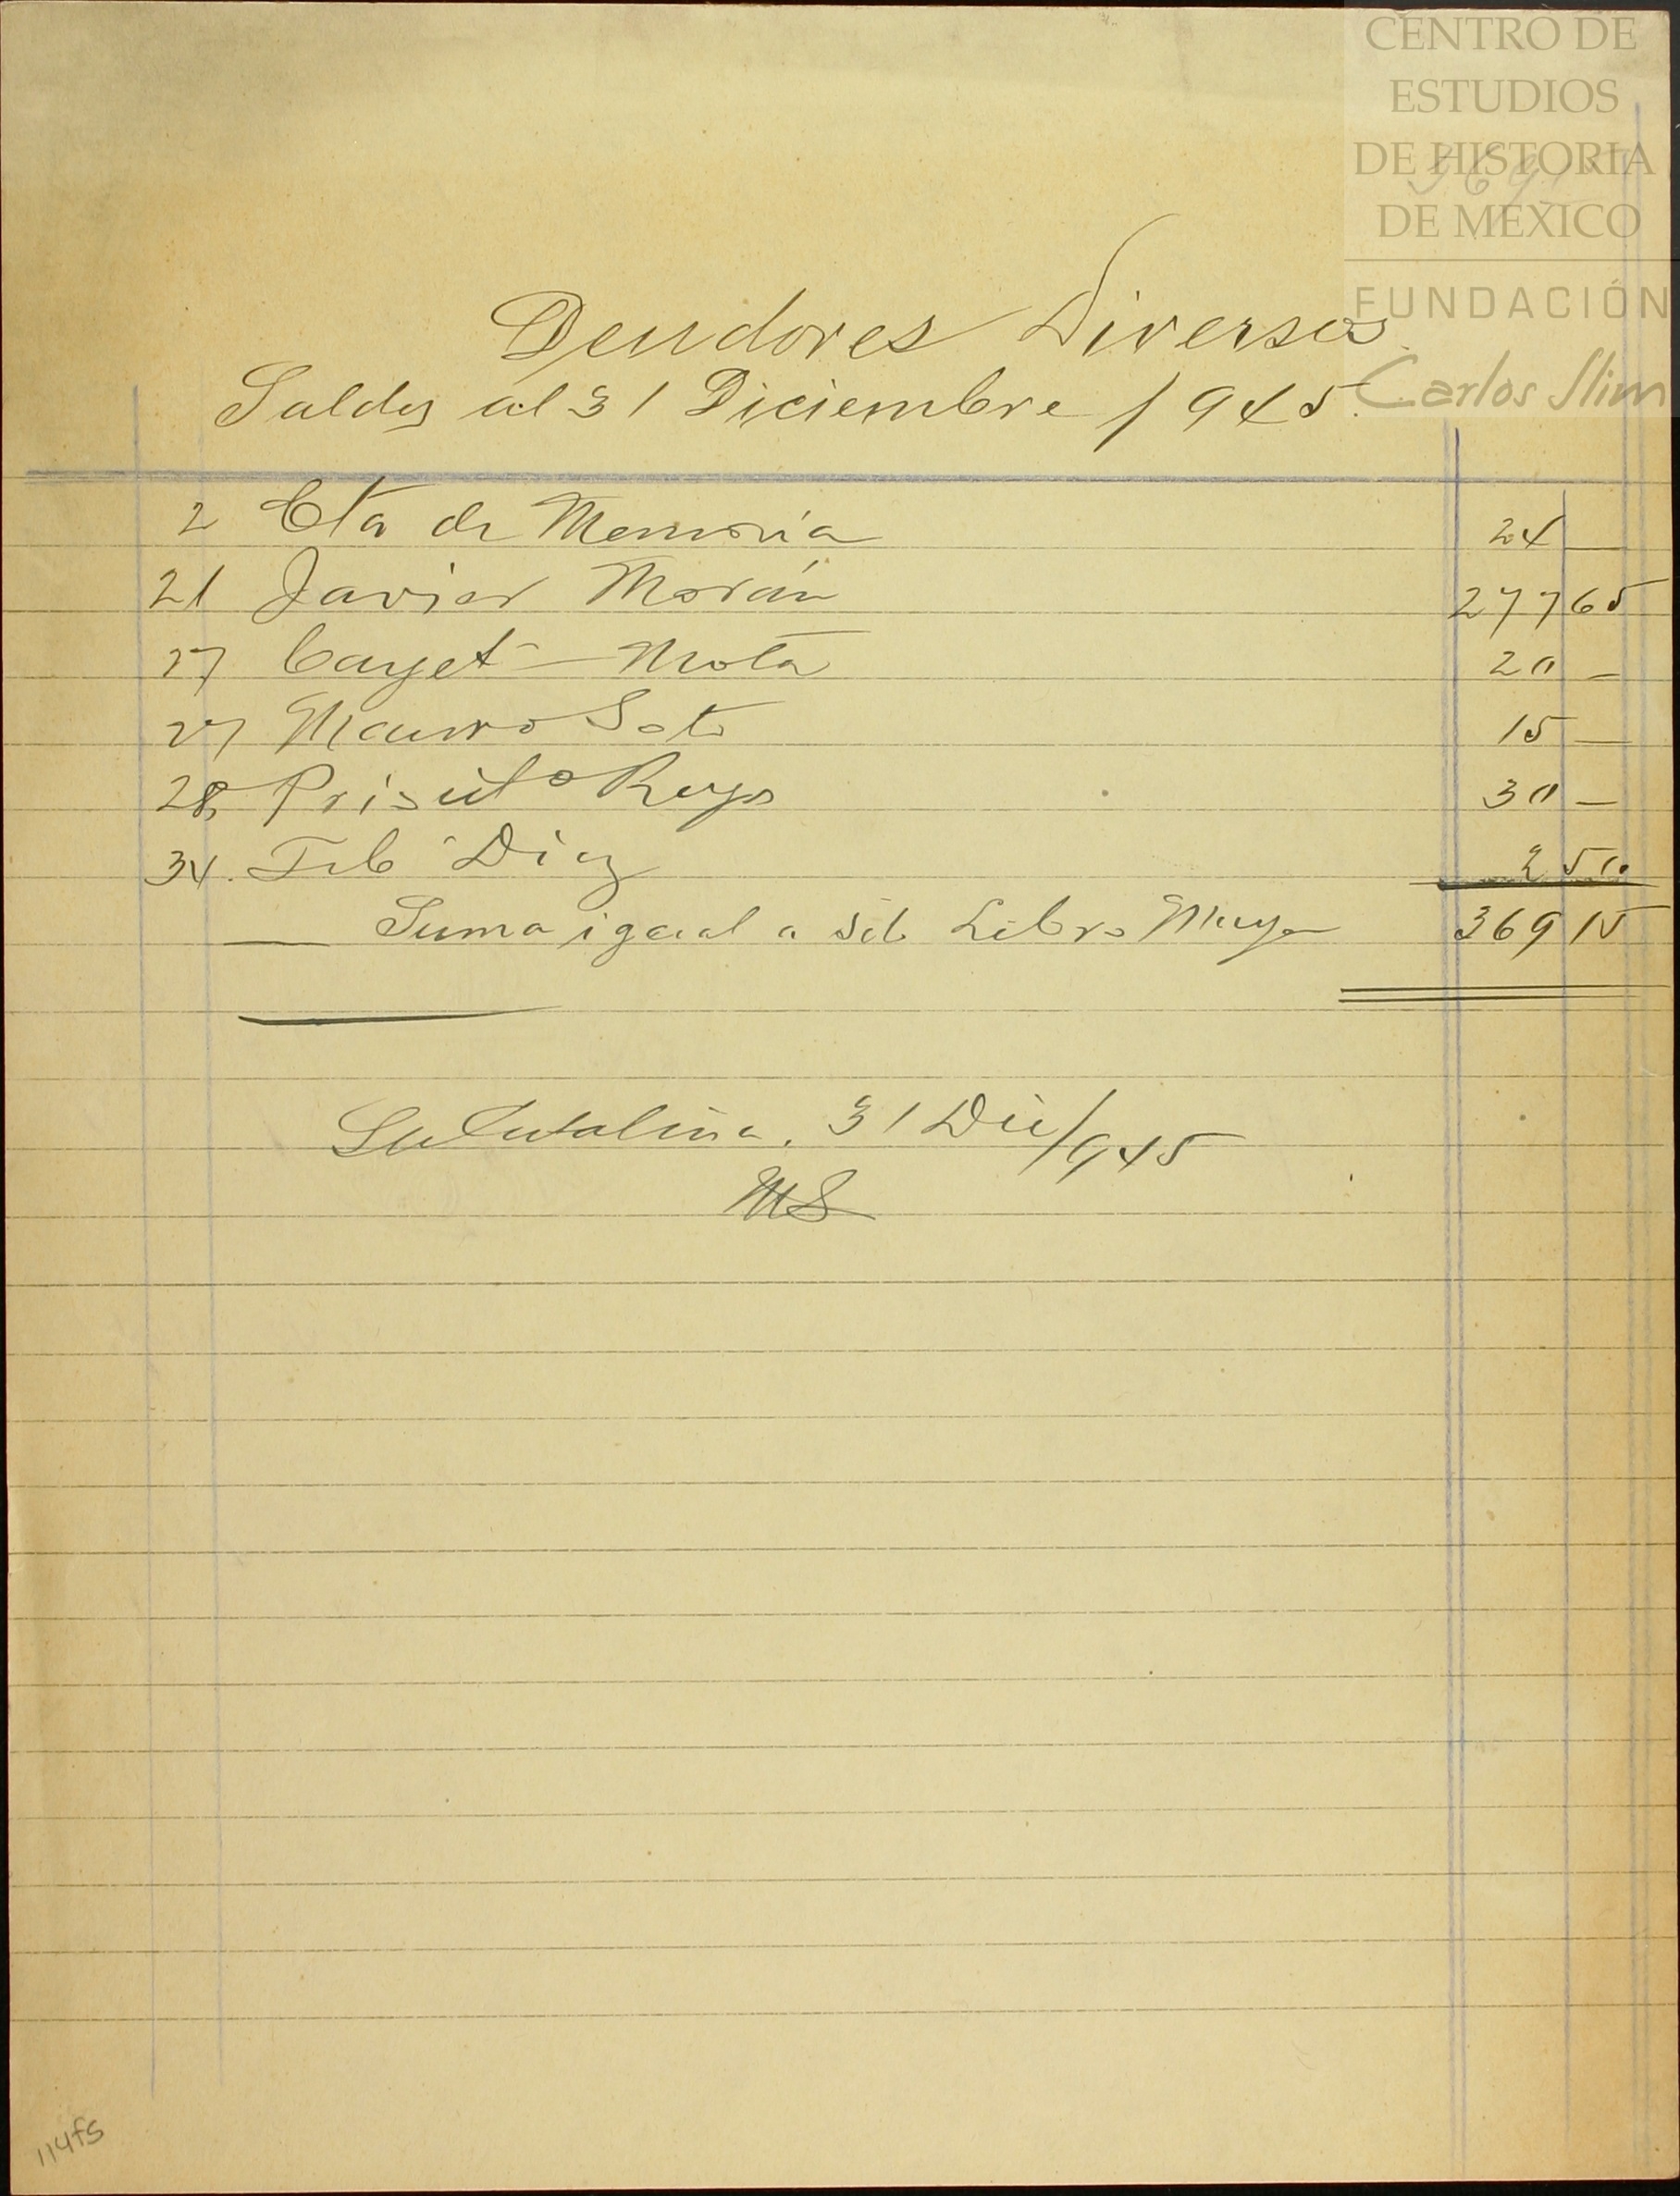 CENTRO DE
ESTUDIOS
DE HISTORIA
DE MEXICO
FUNDACIÓN
Carlos Slim
Deudores Diversos
Saldos al 31 Diciembre / 945.
2 Cta de Memoria 24 —
21 Javier Morán 277 65
27 Cayet— Mota 20 —
27 Mauro Soto 15 —
28 Reyes 30 —
34. Díaz 2 50
Suma igual a Sdo Libro Mayor 369 15
31 Dic/945
MS
114fs